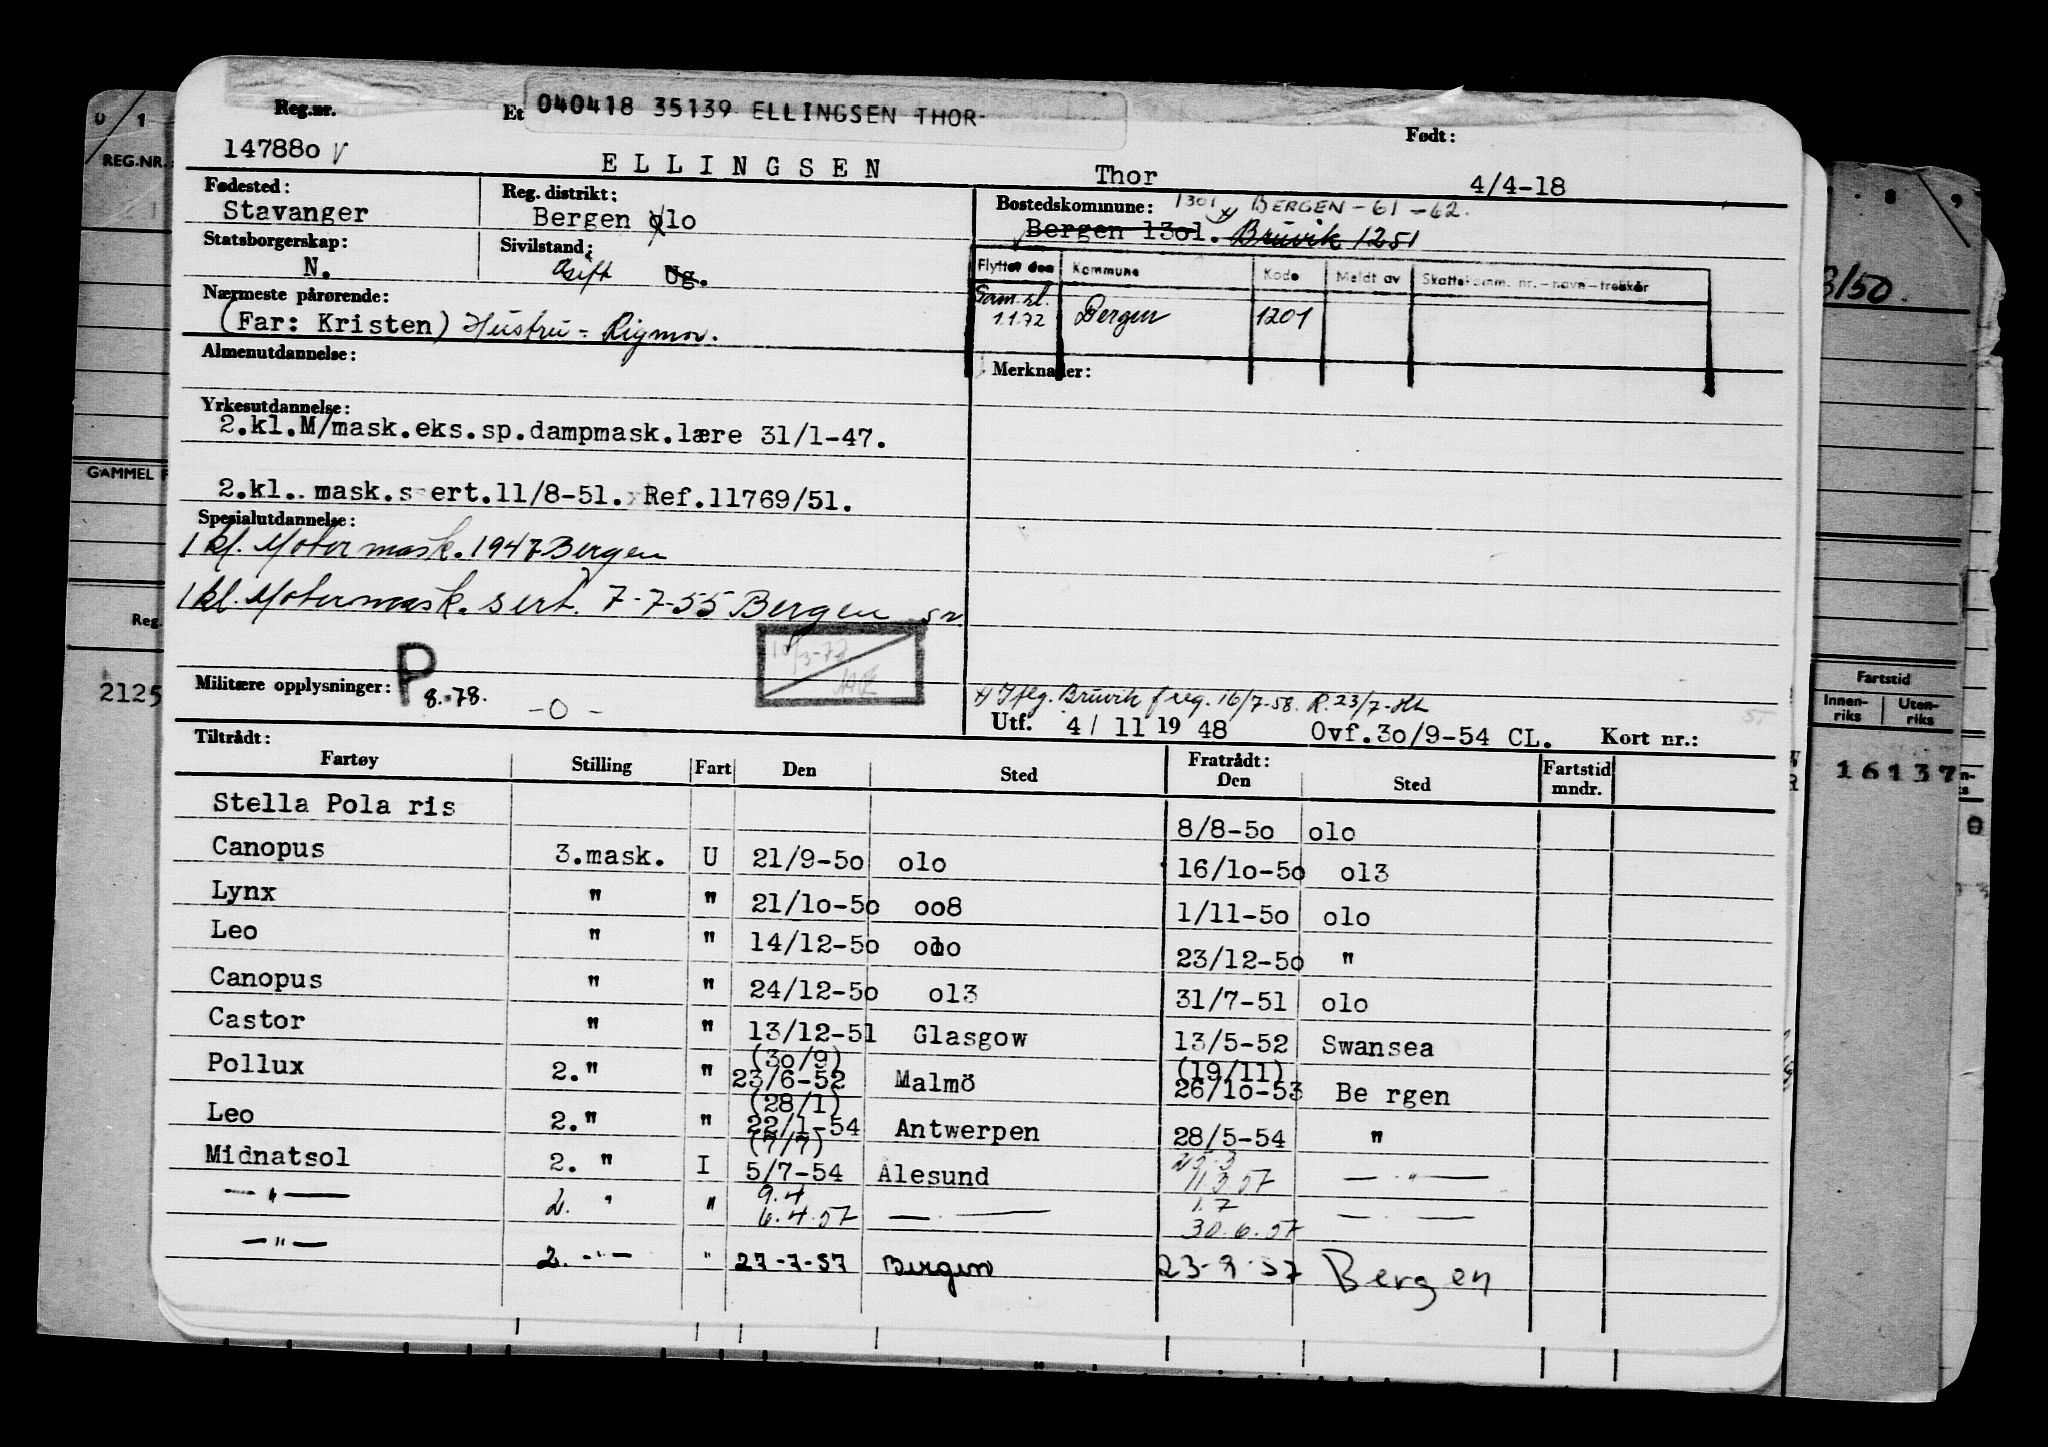 Reg.nr. Et 040418 35139 ELLINGSEN THOR Født:
147880 V ELLINGSEN Thor 4/4-18
Fødested: Reg. distrikt: Bostedskommune: 1301 x) BERGEN - 61 - 62.
Stavanger Bergen olo Bergen 13ol. Bruvik 1251
Statsborgerskap: Sivilstand:
N. Gift Ug.
Flyttet den Kommune Kode Meldt av Skattekomm. nr. - navn - trekkår
Sam.sl. 1.1.72 Bergen 1201
Nærmeste pårørende:
(Far: Kristen) Hustru = Rigmor.
Almenutdannelse:
Merknader:
Yrkesutdannelse:
2.kl.M/mask.eks.sp.dampmask.lære 31/1-47.
2.kl. mask.s ert.11/8-51. Ref.11769/51.
Spesialutdannelse:
1 kl. Motormask. 1947 Bergen
1 kl. Motormask. sert. 7-7-55 Bergen sn
10/3-72
Militære opplysninger: P 8.-78. -0-
x) Iflg. Bruvik f reg. 16/7-58. R. 23/7-
Utf. 4/ 11 19 48 Ovf.3o/9-54 CL. Kort nr.:
Tiltrådt: Fratrådt:
Fartøy Stilling Fart Den Sted Den Sted Fartstid mndr.
Stella Pola ris 8/8-5o olo
Canopus 3.mask. U 21/9-5o olo 16/1o-5o ol3
Lynx " " 21/1o-5o oo8 1/11-5o olo
Leo " " 14/12-5o olo 23/12-5o "
Canopus " " 24/12-5o ol3 31/7-51 olo
Castor " " 13/12-51 Glasgow 13/5-52 Swansea
(3o/9) (19/11)
Pollux 2." " 23/6-52 Malmö 26/1o-53 Be rgen
(28/1)
Leo 2." " 22/1-54 Antwerpen 28/5-54 "
(7/7)
Midnatsol 2. " I 5/7-54 Ålesund 11.3.57 — " —
9.4 1.7
— " — 2. " " 6.4.57 — " — 30.6.57 — " —
— " — 2. - " - " 27-7-57 Bergen 23-9-57 Bergen
0/1
REG.NR.
GAMMEL F
Reg.
2125
8 9
3/50.
Fartstid
Innen-riks Uten-riks
16137